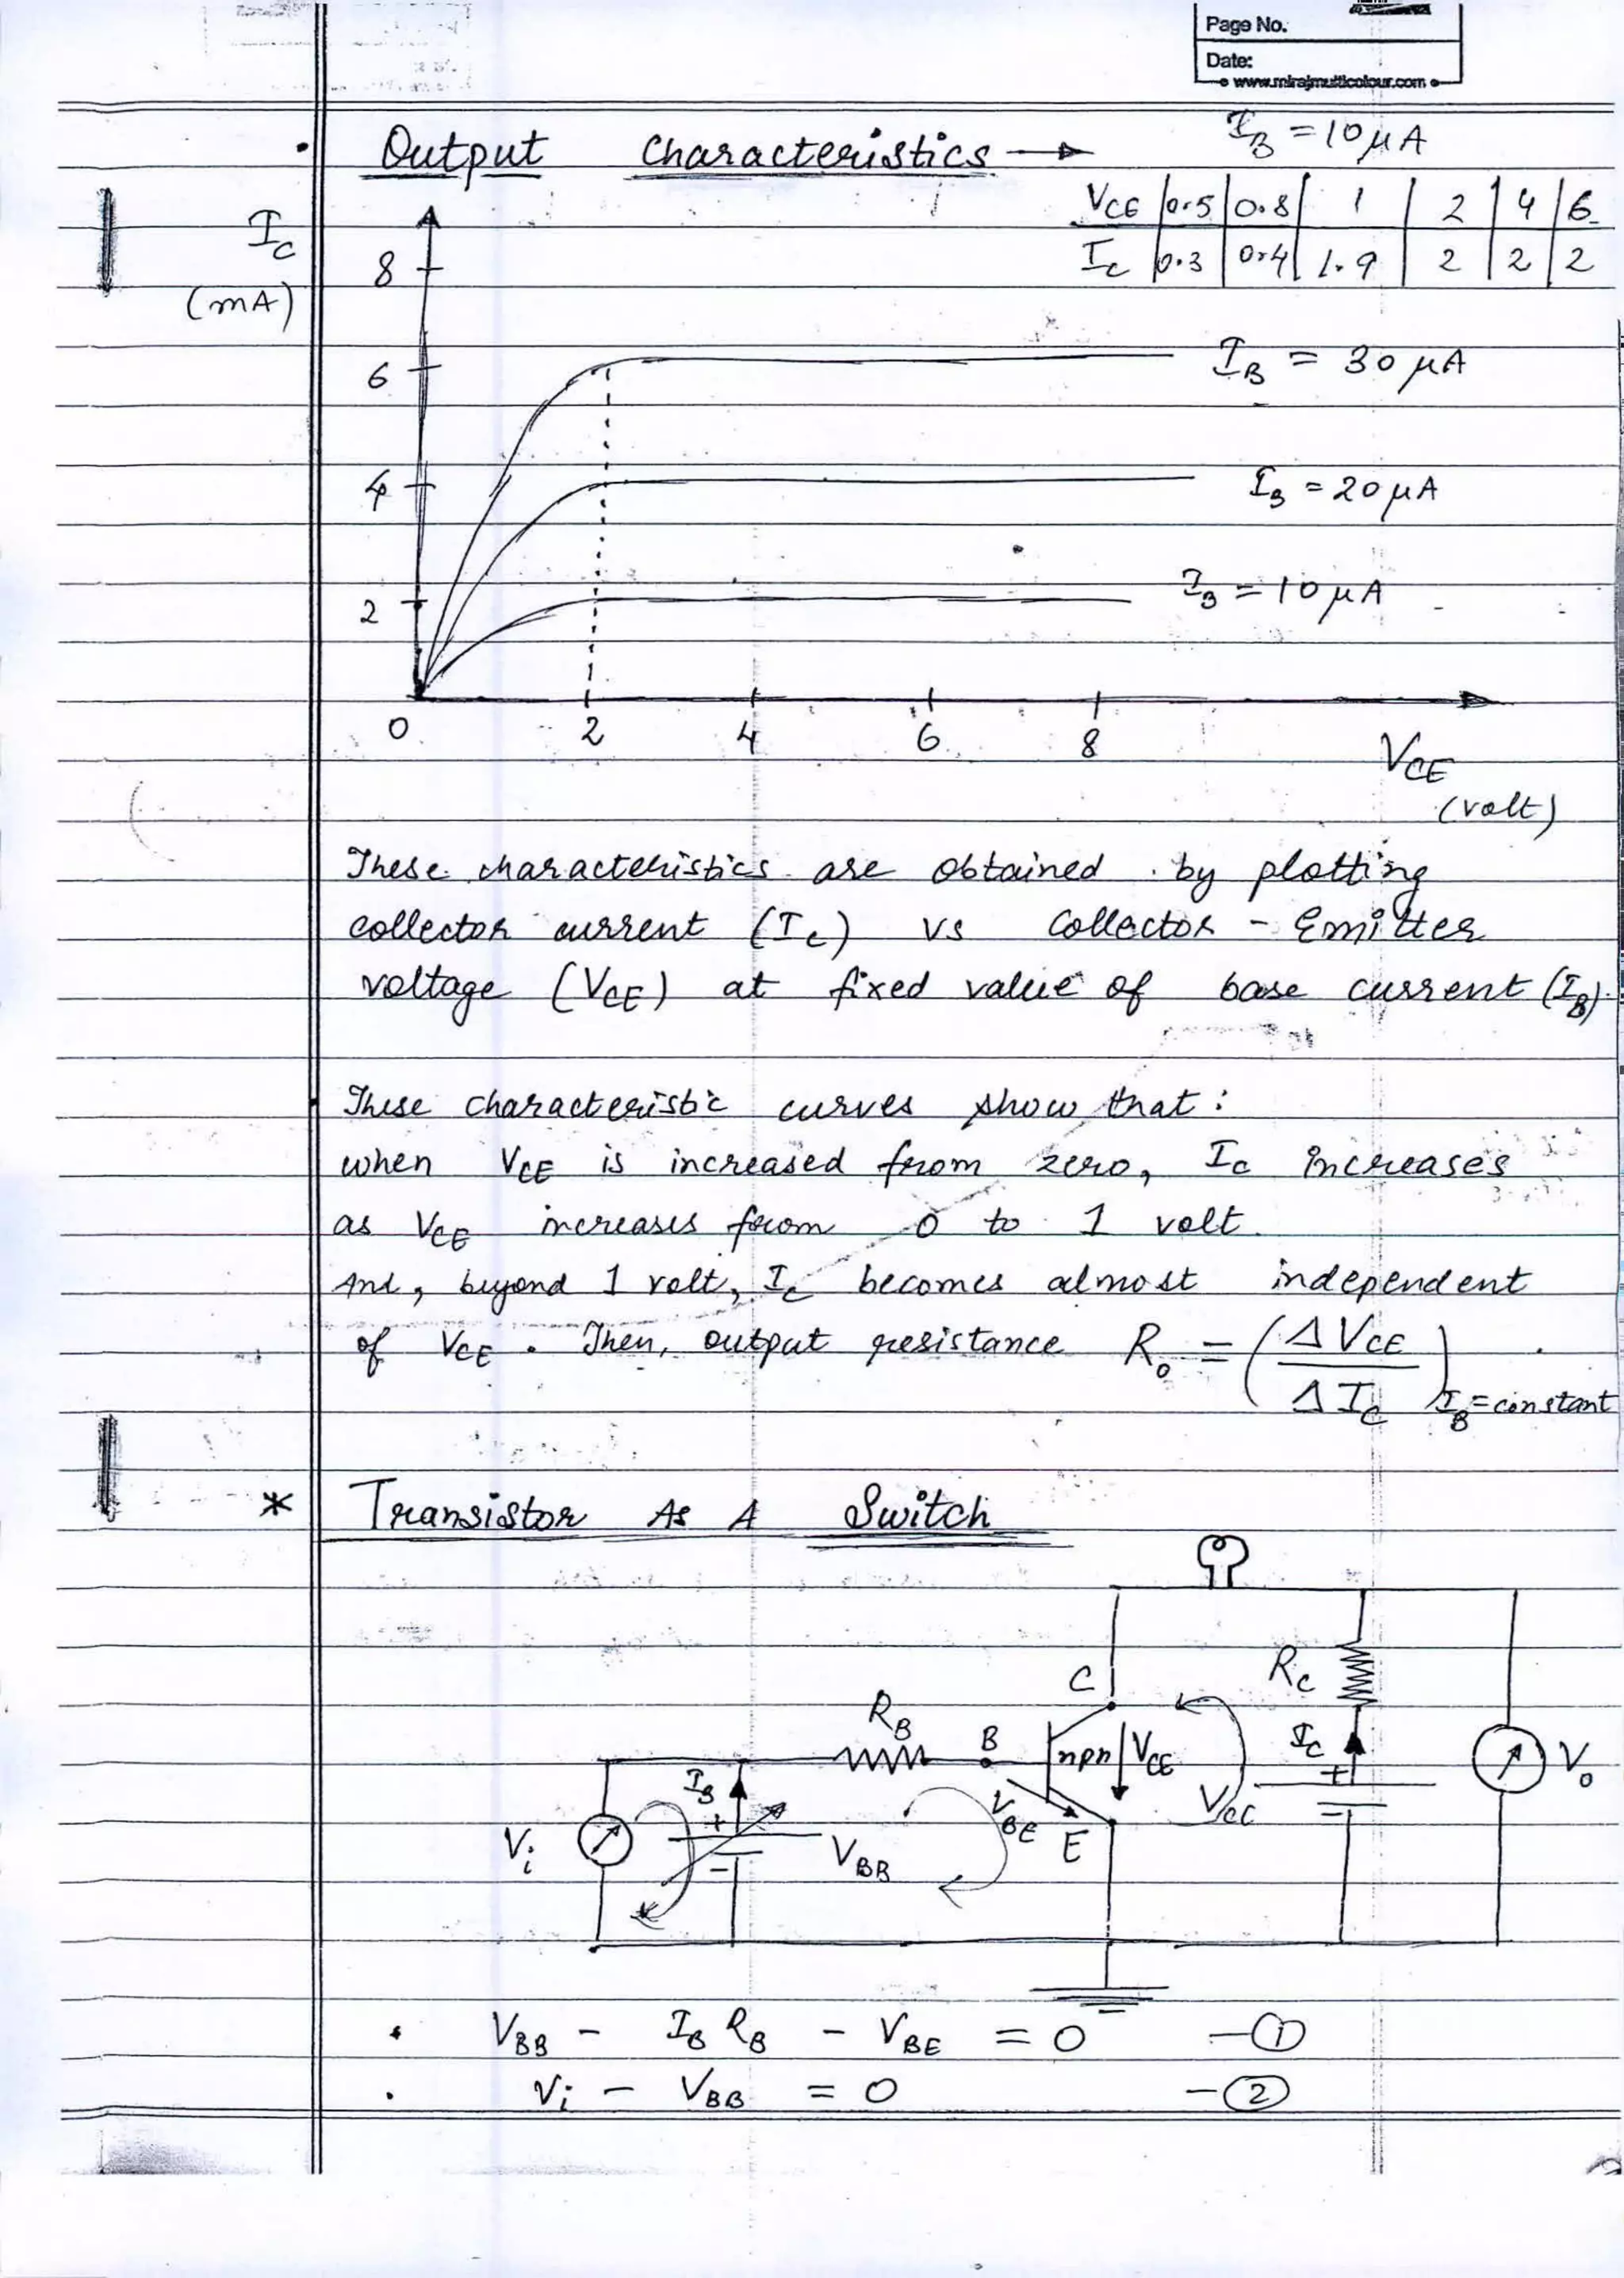 Page No.
Date:
www.mirajmulticolour.com
Output Characteristics →
I_B = 10 μA
V_CE | 0.5 | 0.8 | 1 | 2 | 4 | 6
I_C | 0.3 | 0.4 | 1.9 | 2 | 2 | 2
I_C
(mA)
8
6
4
2
I_B = 30 μA
I_B = 20 μA
I_B = 10 μA
0 2 4 6 8
V_CE
(volt)
These characteristics are obtained by plotting
collector current (I_C) vs Collector - Emitter
voltage (V_CE) at fixed value of base current (I_B).
These characteristic curves show that :
when V_CE is increased from zero, I_C increases
as V_CE increases from 0 to 1 volt.
And, beyond 1 volt, I_C becomes almost independent
of V_CE. Then, output resistance R_o = (ΔV_CE / ΔI_C) I_B = constant
* Transistor As A Switch
C
R_C
R_B
B
npn
V_CE
I_C
+
-
V_o
I_B
+
-
V_i
V_BB
V_BE
E
V_CC
• V_BB - I_B R_B - V_BE = 0 - ①
• V_i - V_BB = 0 - ②